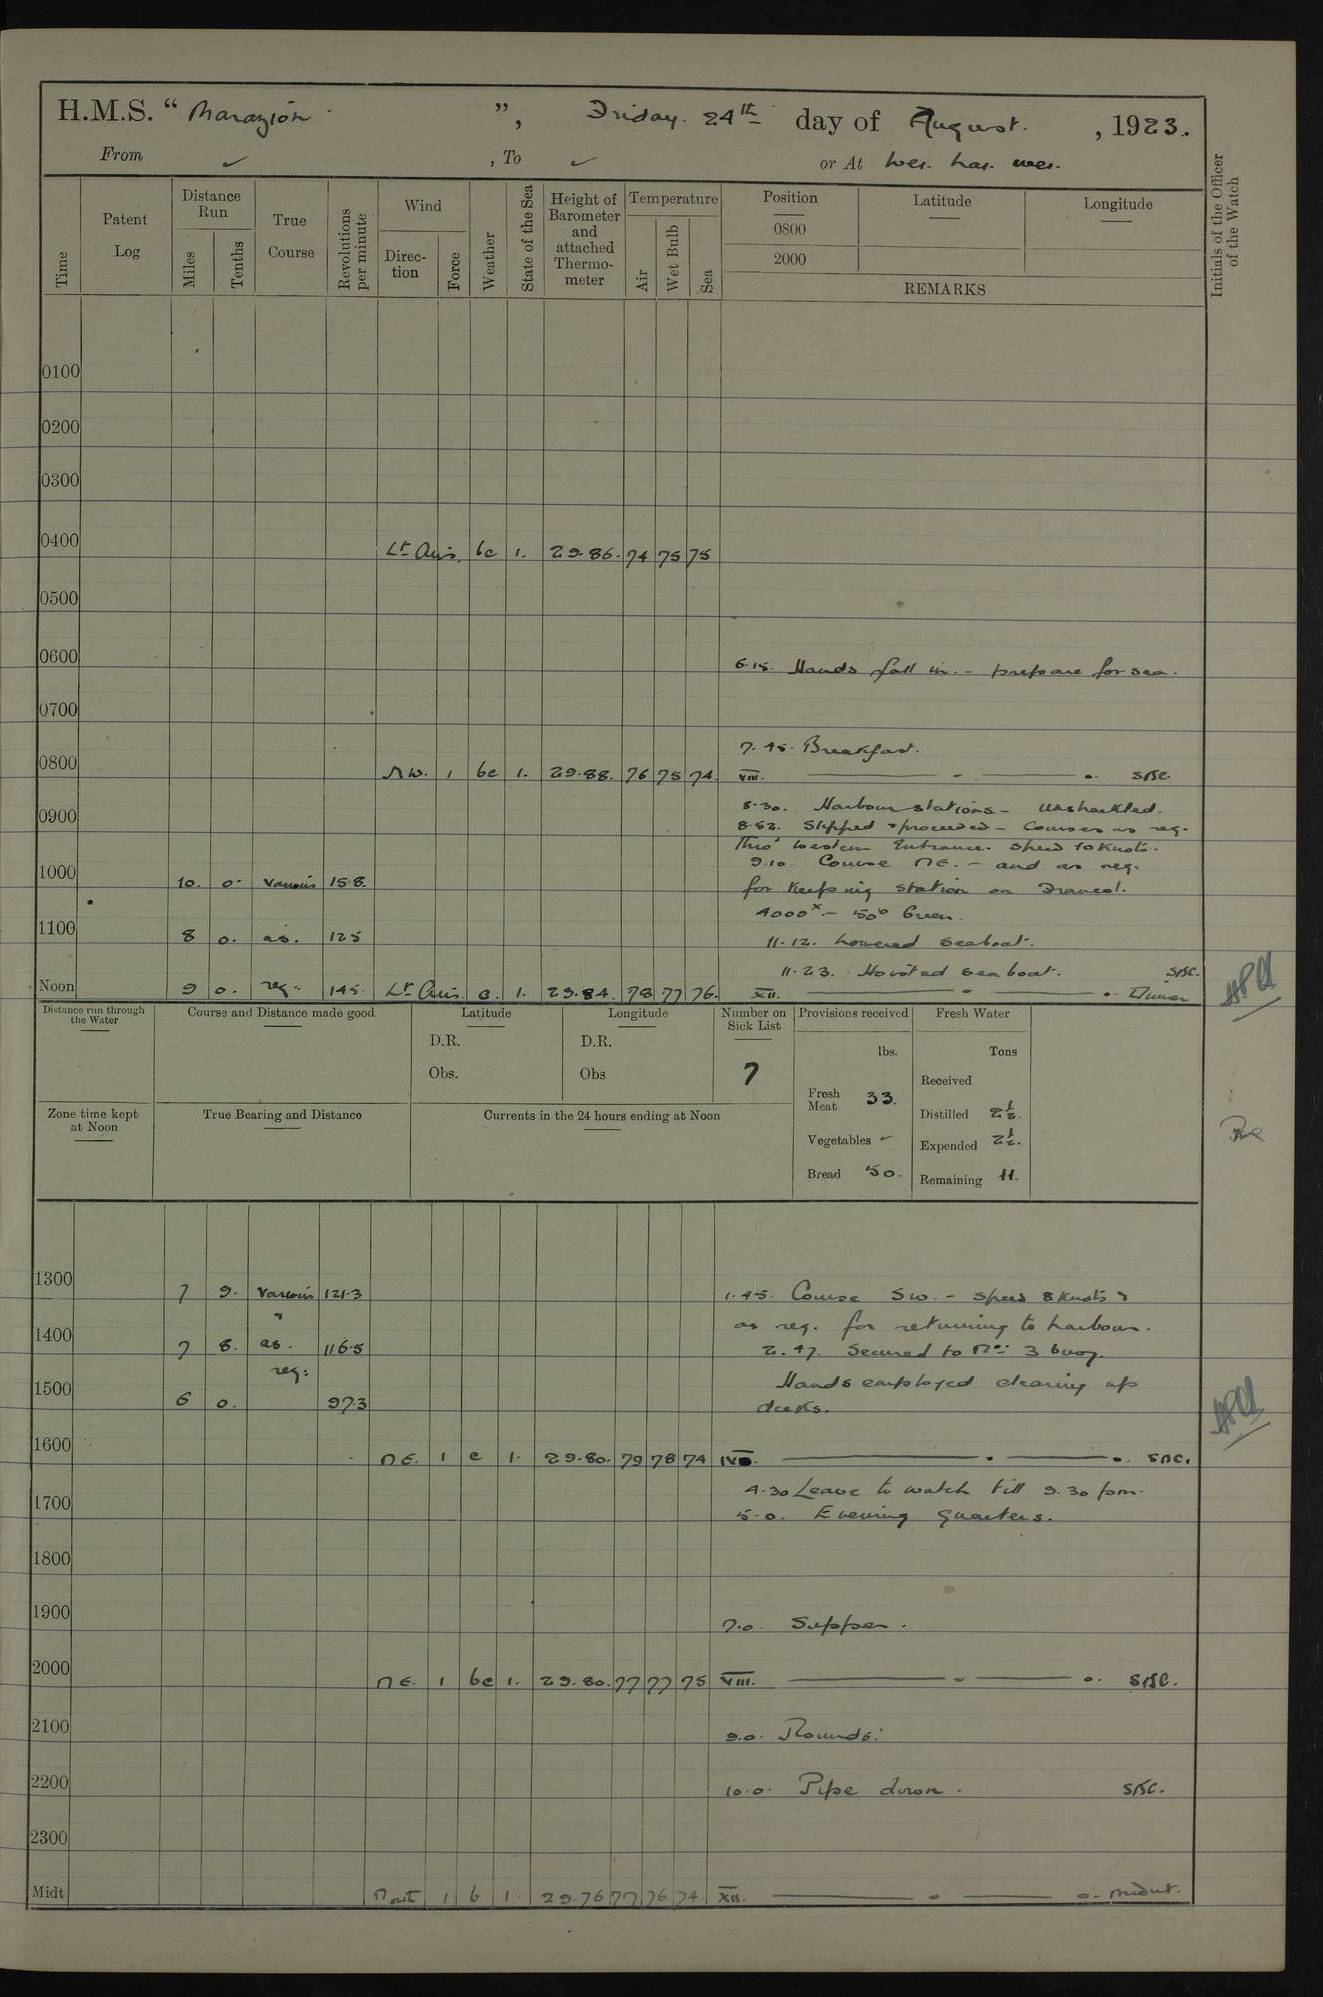 H.M.S. “ Marazion ”, Friday 24th day of August. , 1923.
From ✓ , To ✓ or At Wei. hai. wei.
Time
Patent Log
Distance Run
Miles
Tenths
True Course
Revolutions per minute
Wind
Direction
Force
Weather
State of the Sea
Height of Barometer and attached Thermometer
Temperature
Air
Wet Bulb
Sea
Position
0800
2000
Latitude
Longitude
REMARKS
Initials of the Officer of the Watch
0100
0200
0300
0400 Lt Airs. bc 1. 29.86. 74 75 75
0500
0600 6.15. Hands fall in. - prepare for sea.
0700
7.45. Breakfast.
0800 NW. 1 bc 1. 29.88. 76 75 74 VIII.
8.30. Harbour stations - Unshackled.
0900 8.52. Slipped & proceeded - Courses as req.
Thro' Western Entrance. Speed 10 Knots.
9.10. Course NE. - and as req.
1000 10. 0. Various 158. for Keeping station on
4000x - 50° Green.
1100 8 0. as. 125 11.12. Lowered seaboat.
11.23. Hoisted seaboat.
Noon 9 0. req: 145. Lt Airs. c. 1. 29.84. 78 77 76. XII. Dinner
Distance run through the Water
Course and Distance made good
Latitude
D.R.
Obs.
Longitude
D.R.
Obs
Number on Sick List
7
Provisions received
lbs.
Fresh Meat 33.
Vegetables ✓
Bread 50.
Fresh Water
Tons
Received
Distilled 2½.
Expended 2½.
Remaining 11.
Zone time kept at Noon
True Bearing and Distance
Currents in the 24 hours ending at Noon
1300 7 9. Various 121.3 1.45. Course SW. - speed 8 Knots &
" as req. for returning to harbour.
1400 7 8. as. 116.5 2.47. Secured to No: 3 buoy.
req: Hands employed cleaning up
1500 6 0. 97.3 decks.
1600 NE. 1 c 1. 29.80. 79 78 74 IV.
4.30 Leave to watch till 9.30 pm.
1700 5.0. Evening Quarters.
1800
1900 7.0. Supper.
2000 NE. 1 bc 1. 29.80. 77 77 75 VIII.
2100 9.0. Rounds:
2200 10.0. Pipe down.
2300
Midt North 1 b 1. 29.76 77 76 74. XII. Midnt.